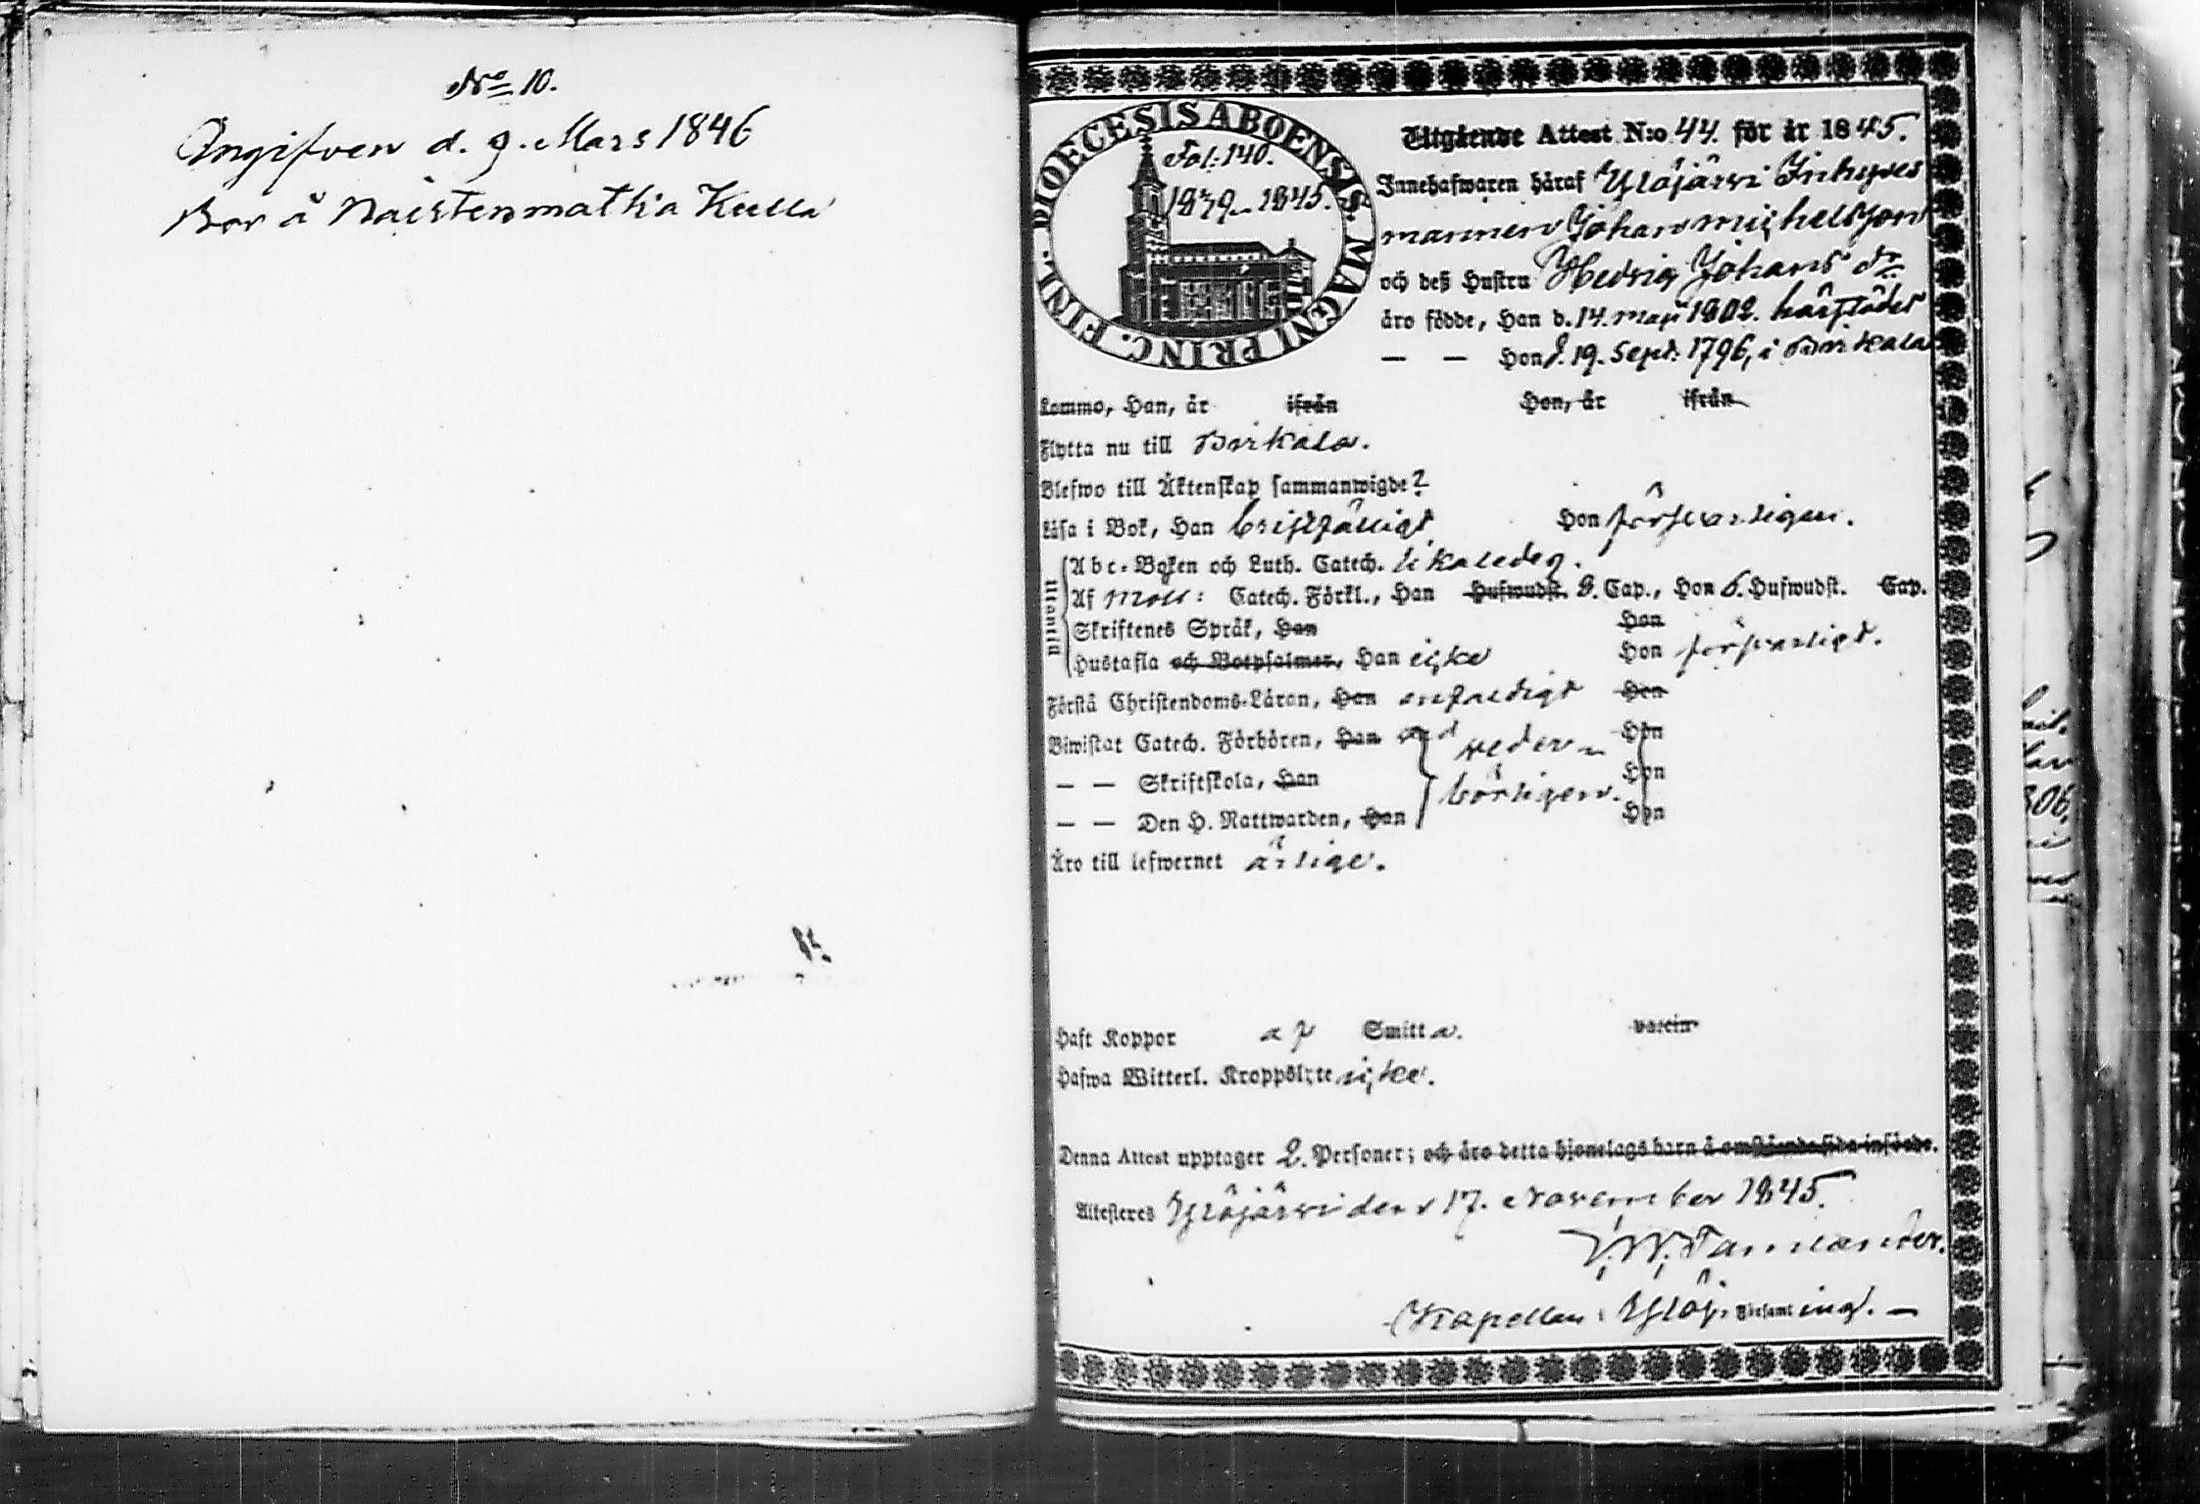 No 10.
Angifven d. 9. Mars 1846
Bor å Naistenmatka Kulla
DIOECESIS ABOENSIS. MAGNI PRINC. FINL.
Fol: 140.
1839–1845.
Utgående Attest N:o 44. för år 1845.
Innehafwaren häraf Ylöjärwi Inhyses
mannen Johan Michelsson
och deß Hustru Hedvig Johans dr
äro födde, Han d. 14. Maji 1802. härstädes
— — Hon d. 19. Sept. 1796, i Birkala
Kommo, Han, år ifrån Hon, år ifrån
Flytta nu till Birkala.
Blefwo till Äktenskap sammanwigde?
Läsa i Bok, Han bristfälligt Hon försvarligen.
Utantill
Abc-Boken och Luth. Catech. likaledes.
Af Möll: Catech. Förkl., Han Hufwudst. 8. Cap., Hon 6. Hufwudst. Cap.
Skriftenes Språk, Han Hon
Hustafla och Botpsalmer, Han icke Hon försvarligt.
Förstå Christendoms-Läran, Han enfaldigt Hon
Biwistat Catech. Förhören, Han Hon
— — Skriftskola, Han Hon
— — Den H. Nattwarden, Han Hon
veder-
börligen.
Äro till lefwernet ärlige.
Haft Koppor af Smitta. vaccin
Hafwa Witterl. Kroppslyte icke.
Denna Attest upptager 2. Personer; och äro detta hjonelags barn å omstående sida införde.
Attesteres Ylöjärwi den 17. November 1845.
Tammelander.
Kapellan i Ylöj. Församl ing. —